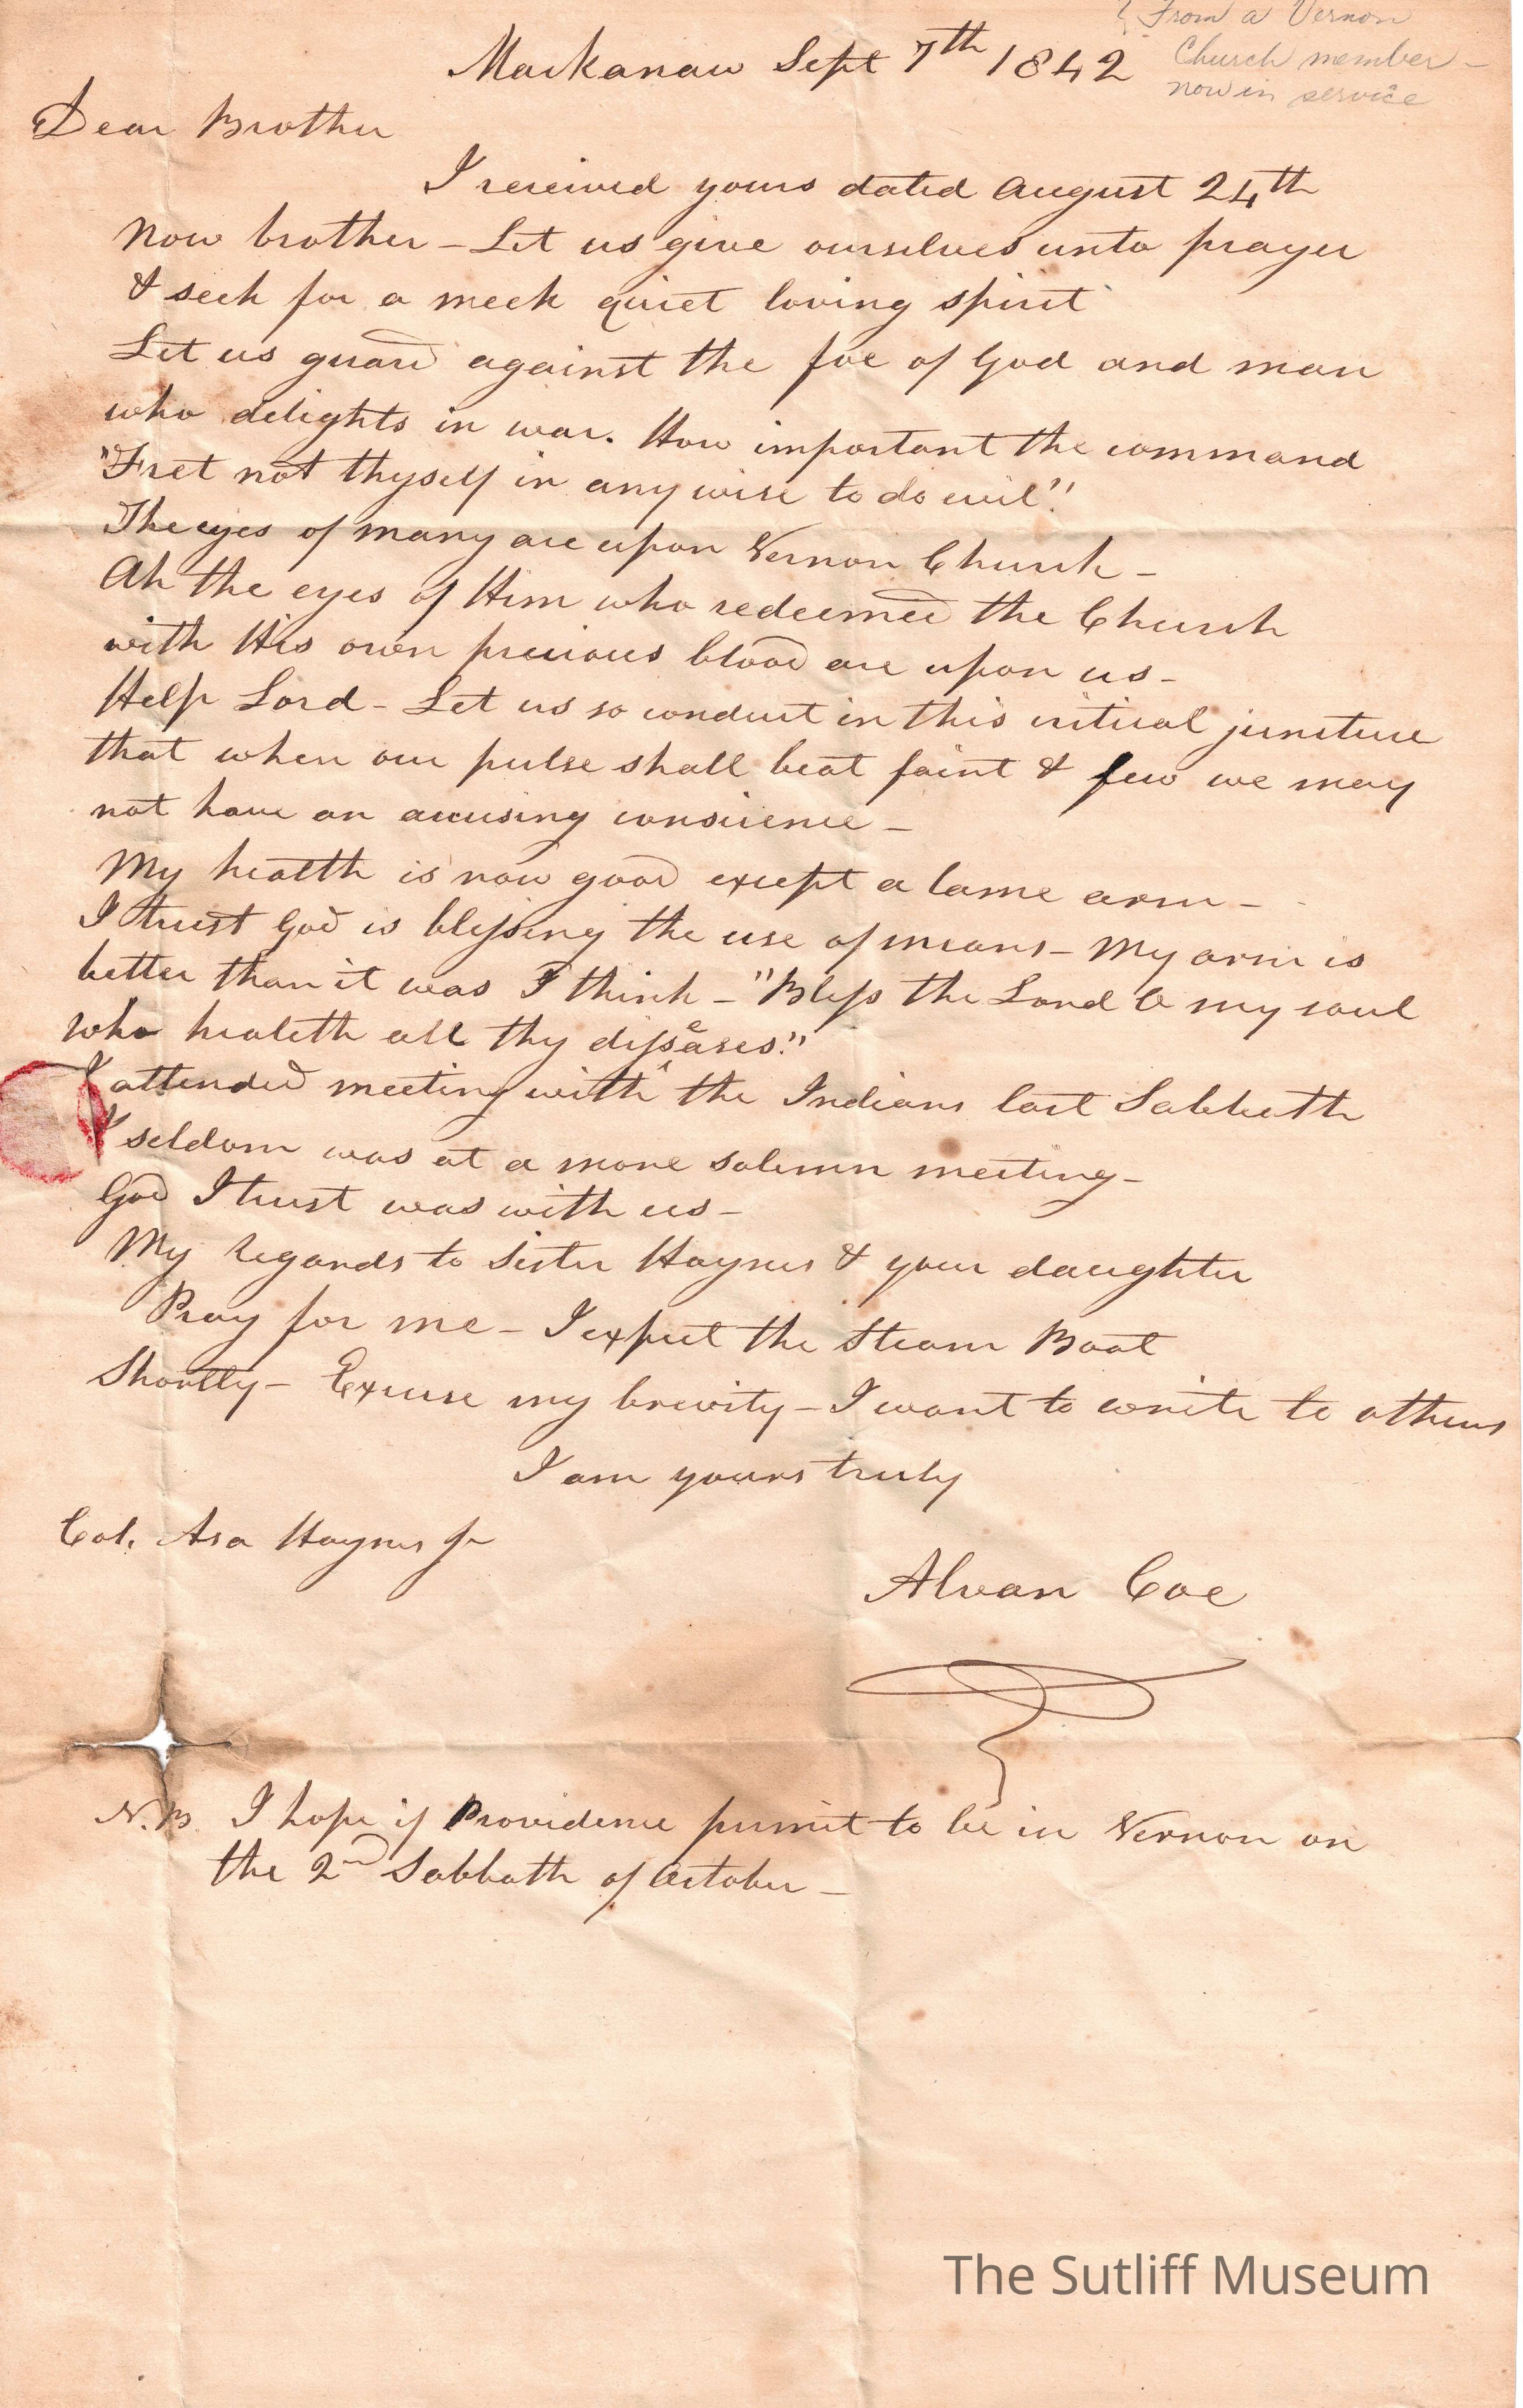 Mackanaw Sept 7th 1842
From a Vernon
Church member -
now in service
Dear Brother
I received yours dated August 24th
Now brother - Let us give ourselves unto prayer
& seek for a meek quiet loving spirit
Let us guard against the foe of God and man
who delights in war. How important the command
"Fret not thyself in any wise to do evil".
The eyes of many are upon Vernon Church -
Ah the eyes of Him who redeemed the Church
with His own precious blood are upon us -
Help Lord - Let us so conduct in this critical juncture
that when our pulse shall beat faint & few we may
not have an accusing conscience -
My health is now good except a lame arm -
I trust God is blessing the use of means - My arm is
better than it was I think - "Bless the Lord O my soul
who healeth all thy disseases."
I attended meeting with the Indians last Sabbath
I seldom was at a more solemn meeting -
God I trust was with us -
My regards to Sister Haynes & your daughter
Pray for me - I expect the Steam Boat
Shortly - Excuse my brevity - I want to write to others
I am yours truly
Col. Asa Haynes Jr
Alvan Coe
N.B. I hope if Providence permit to be in Vernon on
the 2nd Sabbath of October -
The Sutliff Museum